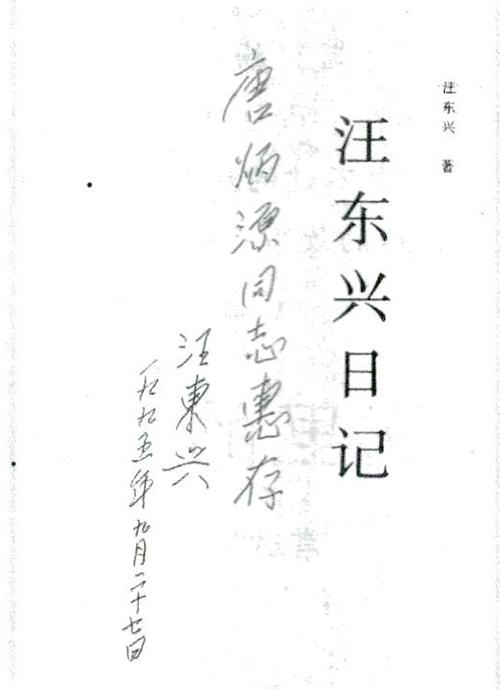 汪东兴 著
汪东兴日记
唐炳源同志惠存
汪東兴
一九九五年九月二十七日